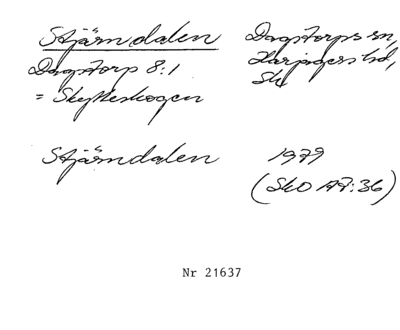 Stjärndalen Dagstorps sn,
Dagstorp 8:1 Harjagers hd,
= Skytteskogen Sk
Stjärndalen 1979
(SkO A7:36)
Nr 21637